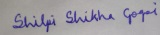 Shilpi Shikha Gogoi